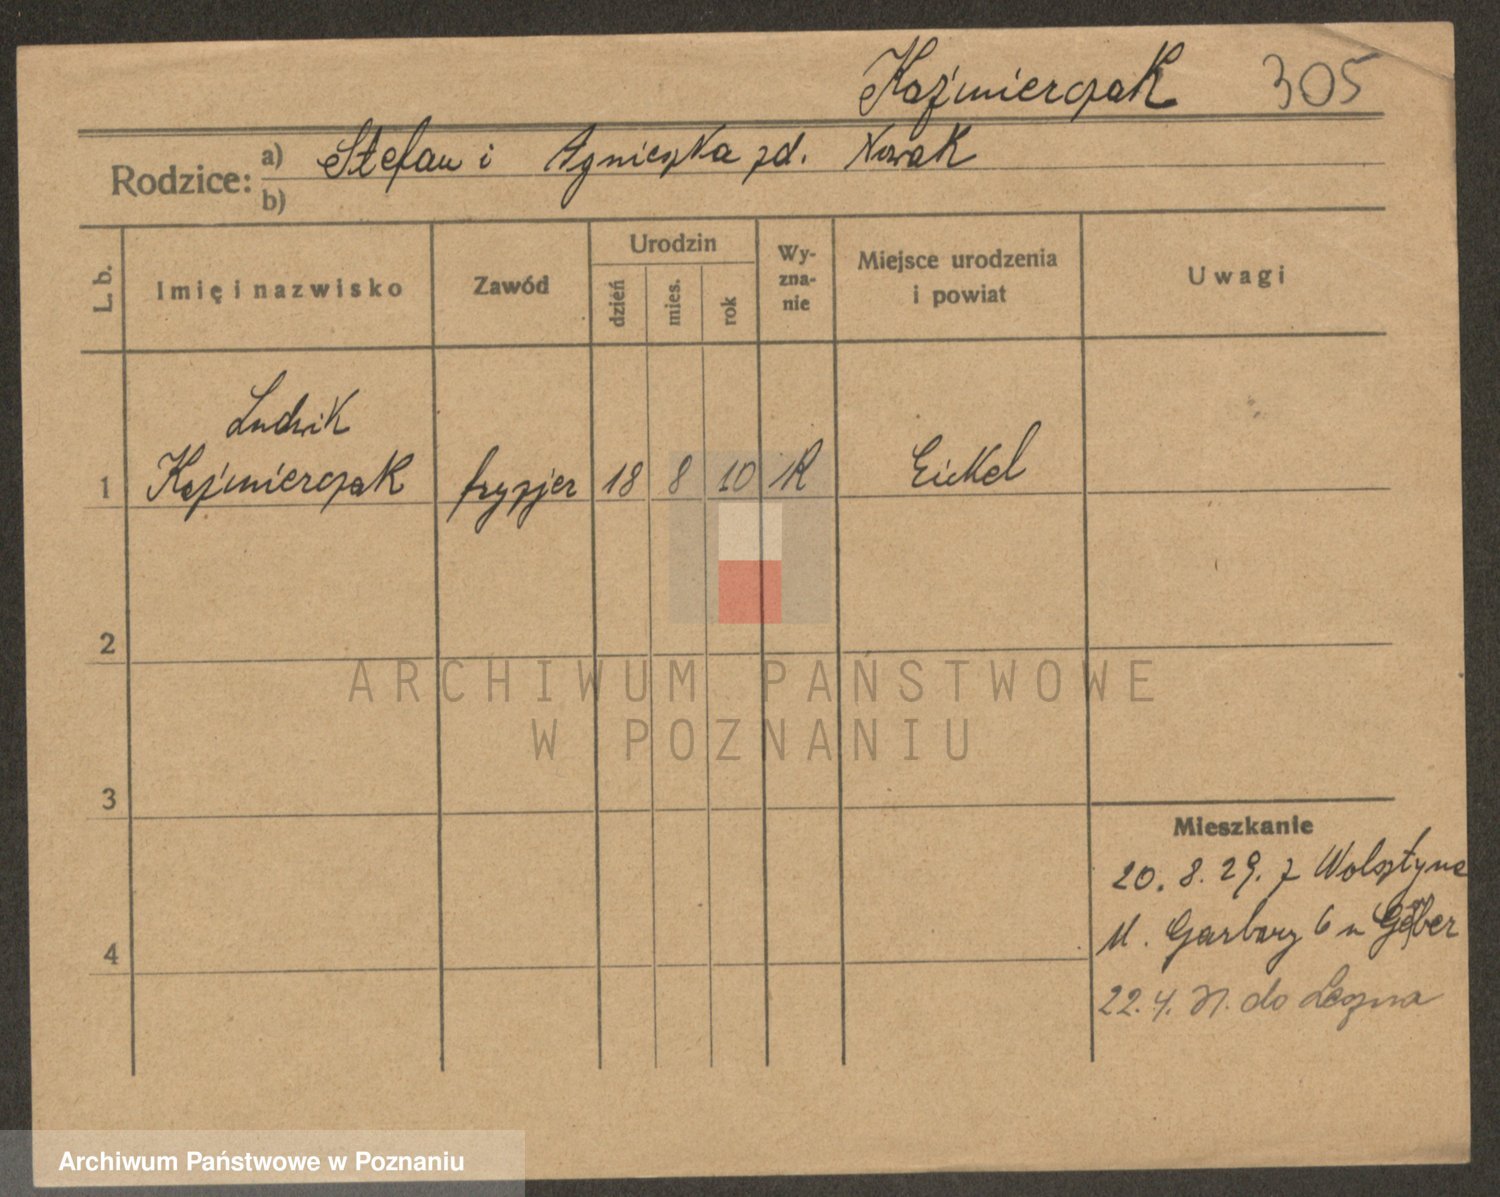 Kaźmierczak 305
Rodzice: a) Stefan i Agnieszka zd. Nowak
b)
L. b. Imię i nazwisko Zawód Urodzin dzień mies. rok Wy-zna-nie Miejsce urodzenia i powiat Uwagi
Ludwik
1 Kaźmierczak fryzjer 18 8 10 R Eickel
2
ARCHIWUM PAŃSTWOWE
W POZNANIU
3
Mieszkanie
20. 8. 29. z Wolsztyna
4 Ul. Garbary 6 u
22. 4. do
Archiwum Państwowe w Poznaniu